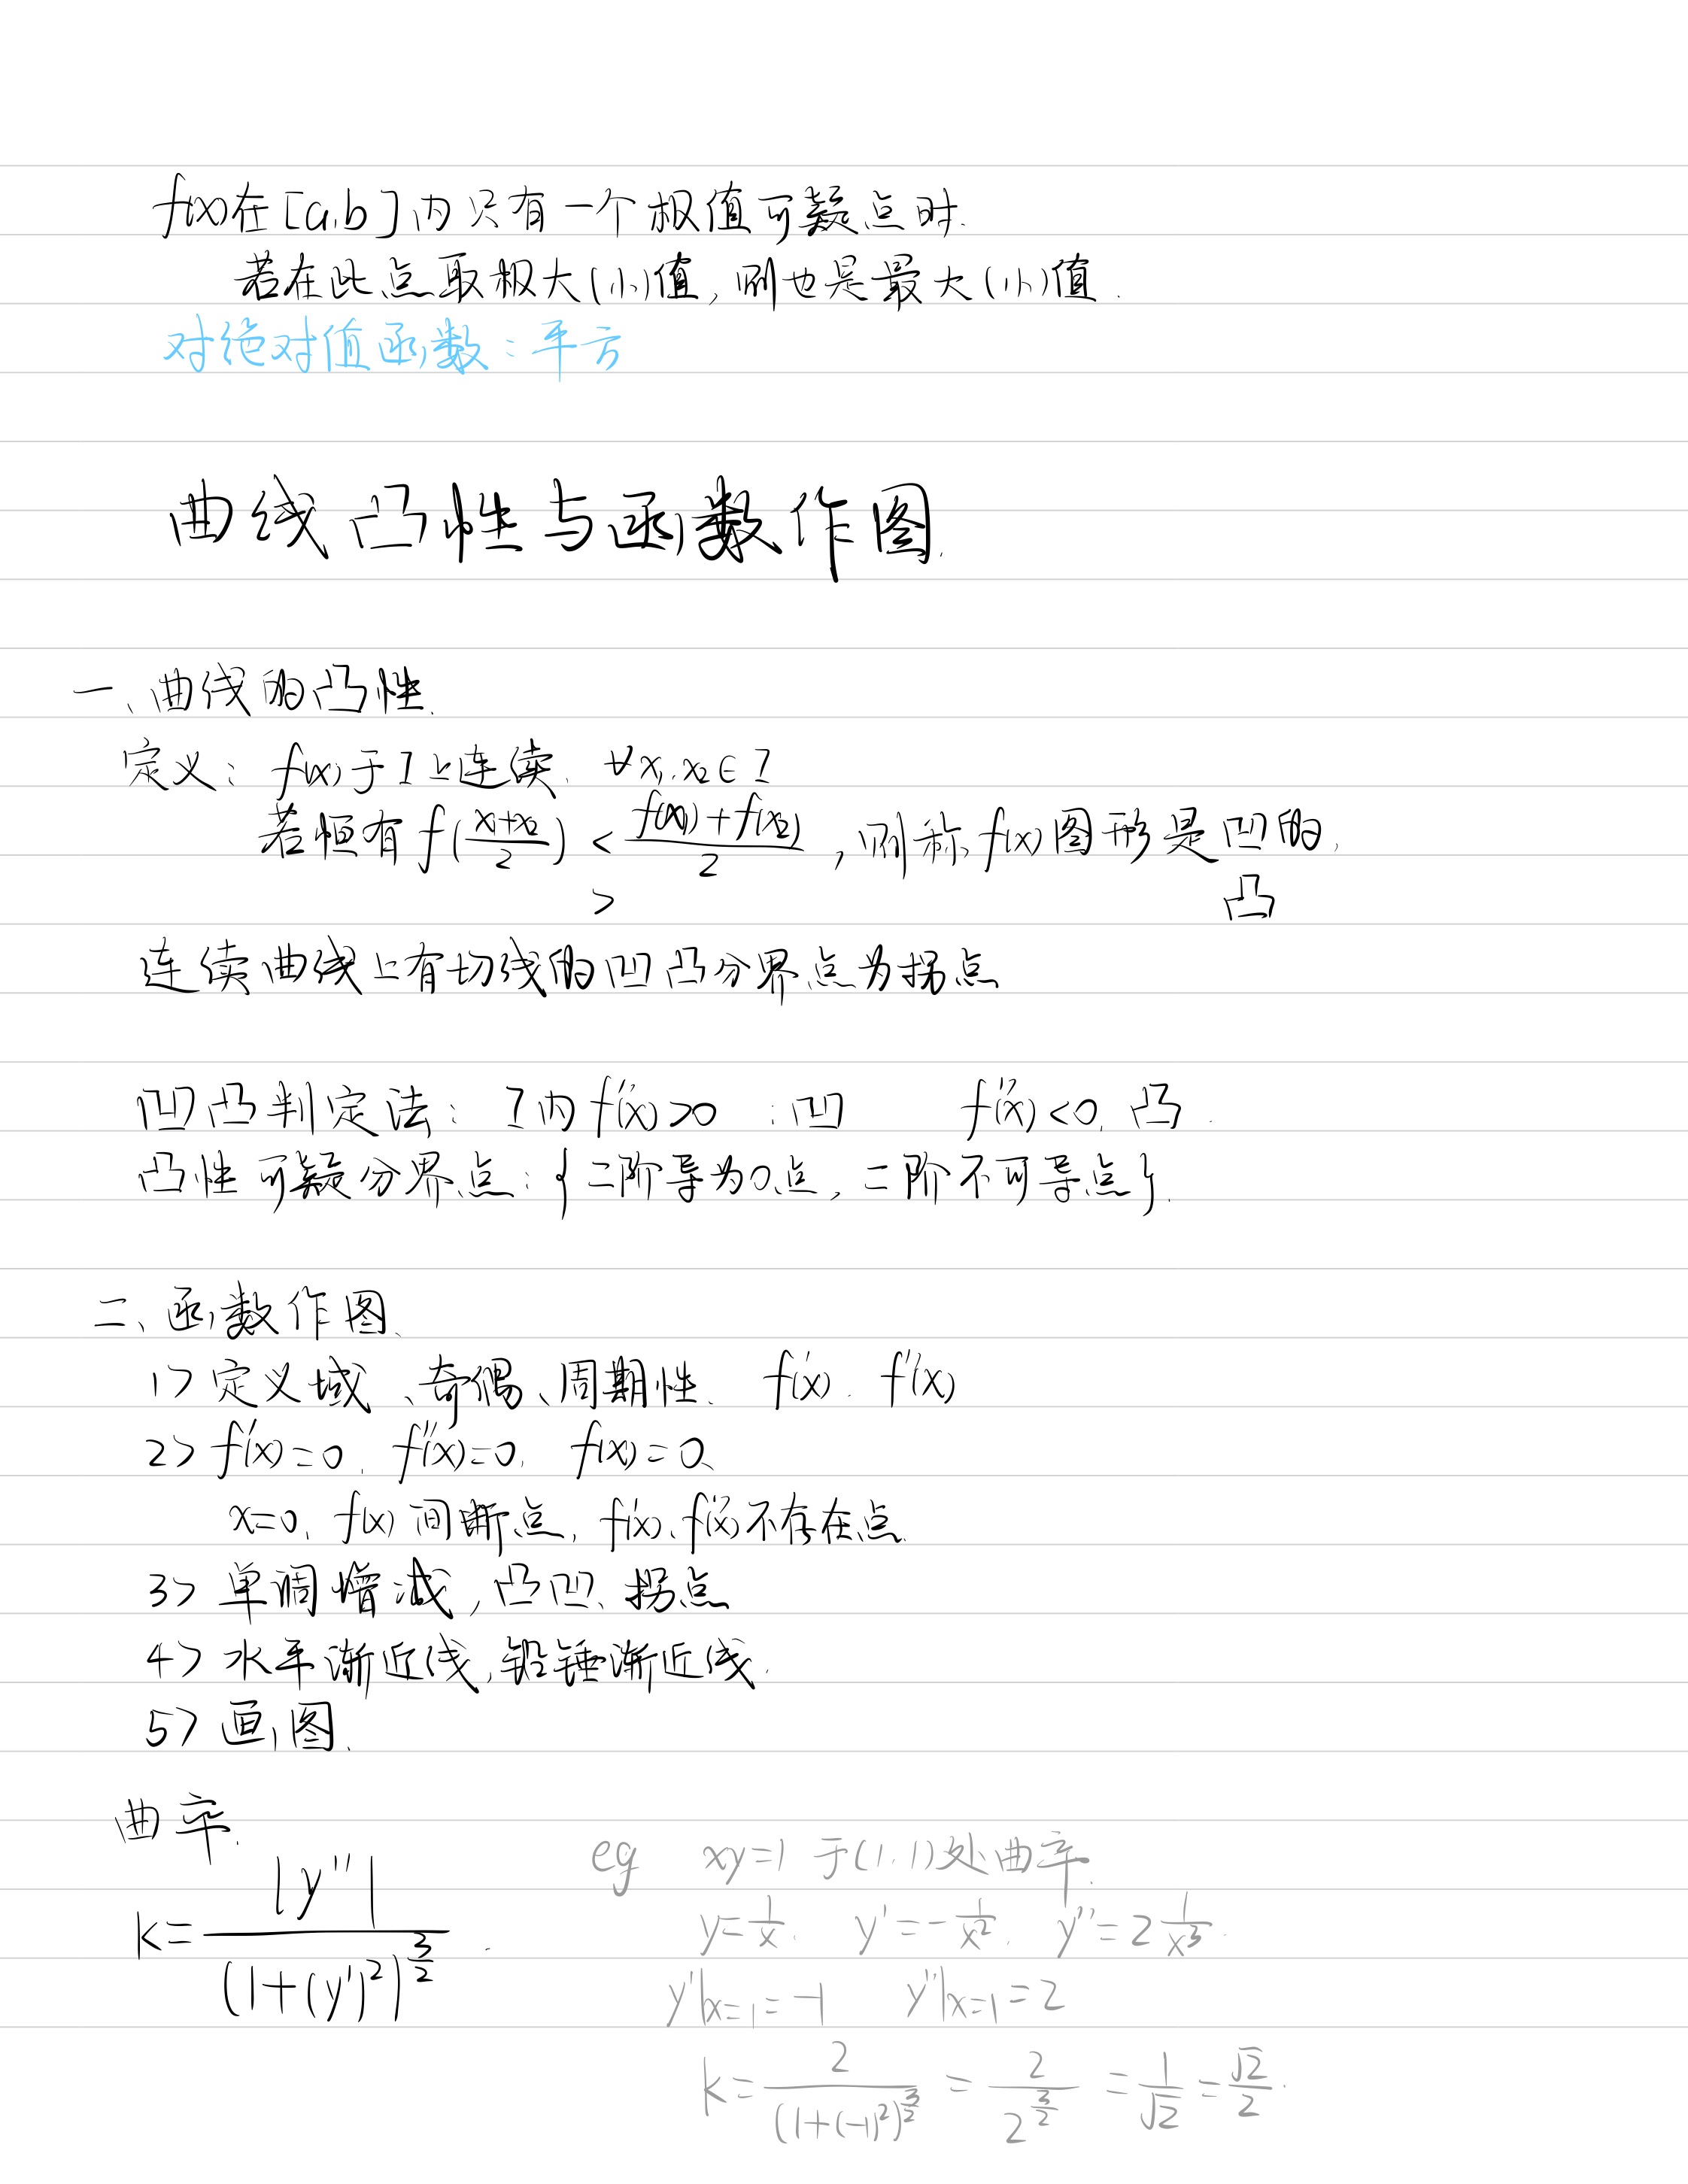 f(x)在[a,b]内只有一个极值可疑点时.
若在此点取极大(小)值,则也是最大(小)值.
对绝对值函数:平方
曲线凸性与函数作图.
一、曲线的凸性.
定义: f(x)于I上连续. ∀x₁,x₂∈I
若恒有 f((x₁+x₂)/2) < (f(x₁)+f(x₂))/2 ,则称f(x)图形是凹的,
> 凸
连续曲线上有切线的凹凸分界点为拐点
凹凸判定法: I内f''(x)>0 :凹 f''(x)<0, 凸.
凸性可疑分界点:{二阶导为0点, 二阶不可导点}.
二、函数作图、
1> 定义域、奇偶、周期性、 f'(x). f''(x)
2> f'(x)=0, f''(x)=0, f(x)=0、
x=0, f(x)间断点, f'(x)、f''(x)不存在点.
3> 单调增减,凸凹、拐点
4> 水平渐近线,铅锤渐近线.
5> 画图.
曲率.
k=|y''|/(1+(y')²)^(3/2) .
eg xy=1 于(1,1)处曲率.
y=1/x. y'=-1/x². y''=2 1/x³.
y'|x=1=-1 y''|x=1=2
k=2/(1+(-1)²)^(3/2) = 2/2^(3/2) = 1/√2 = √2/2.